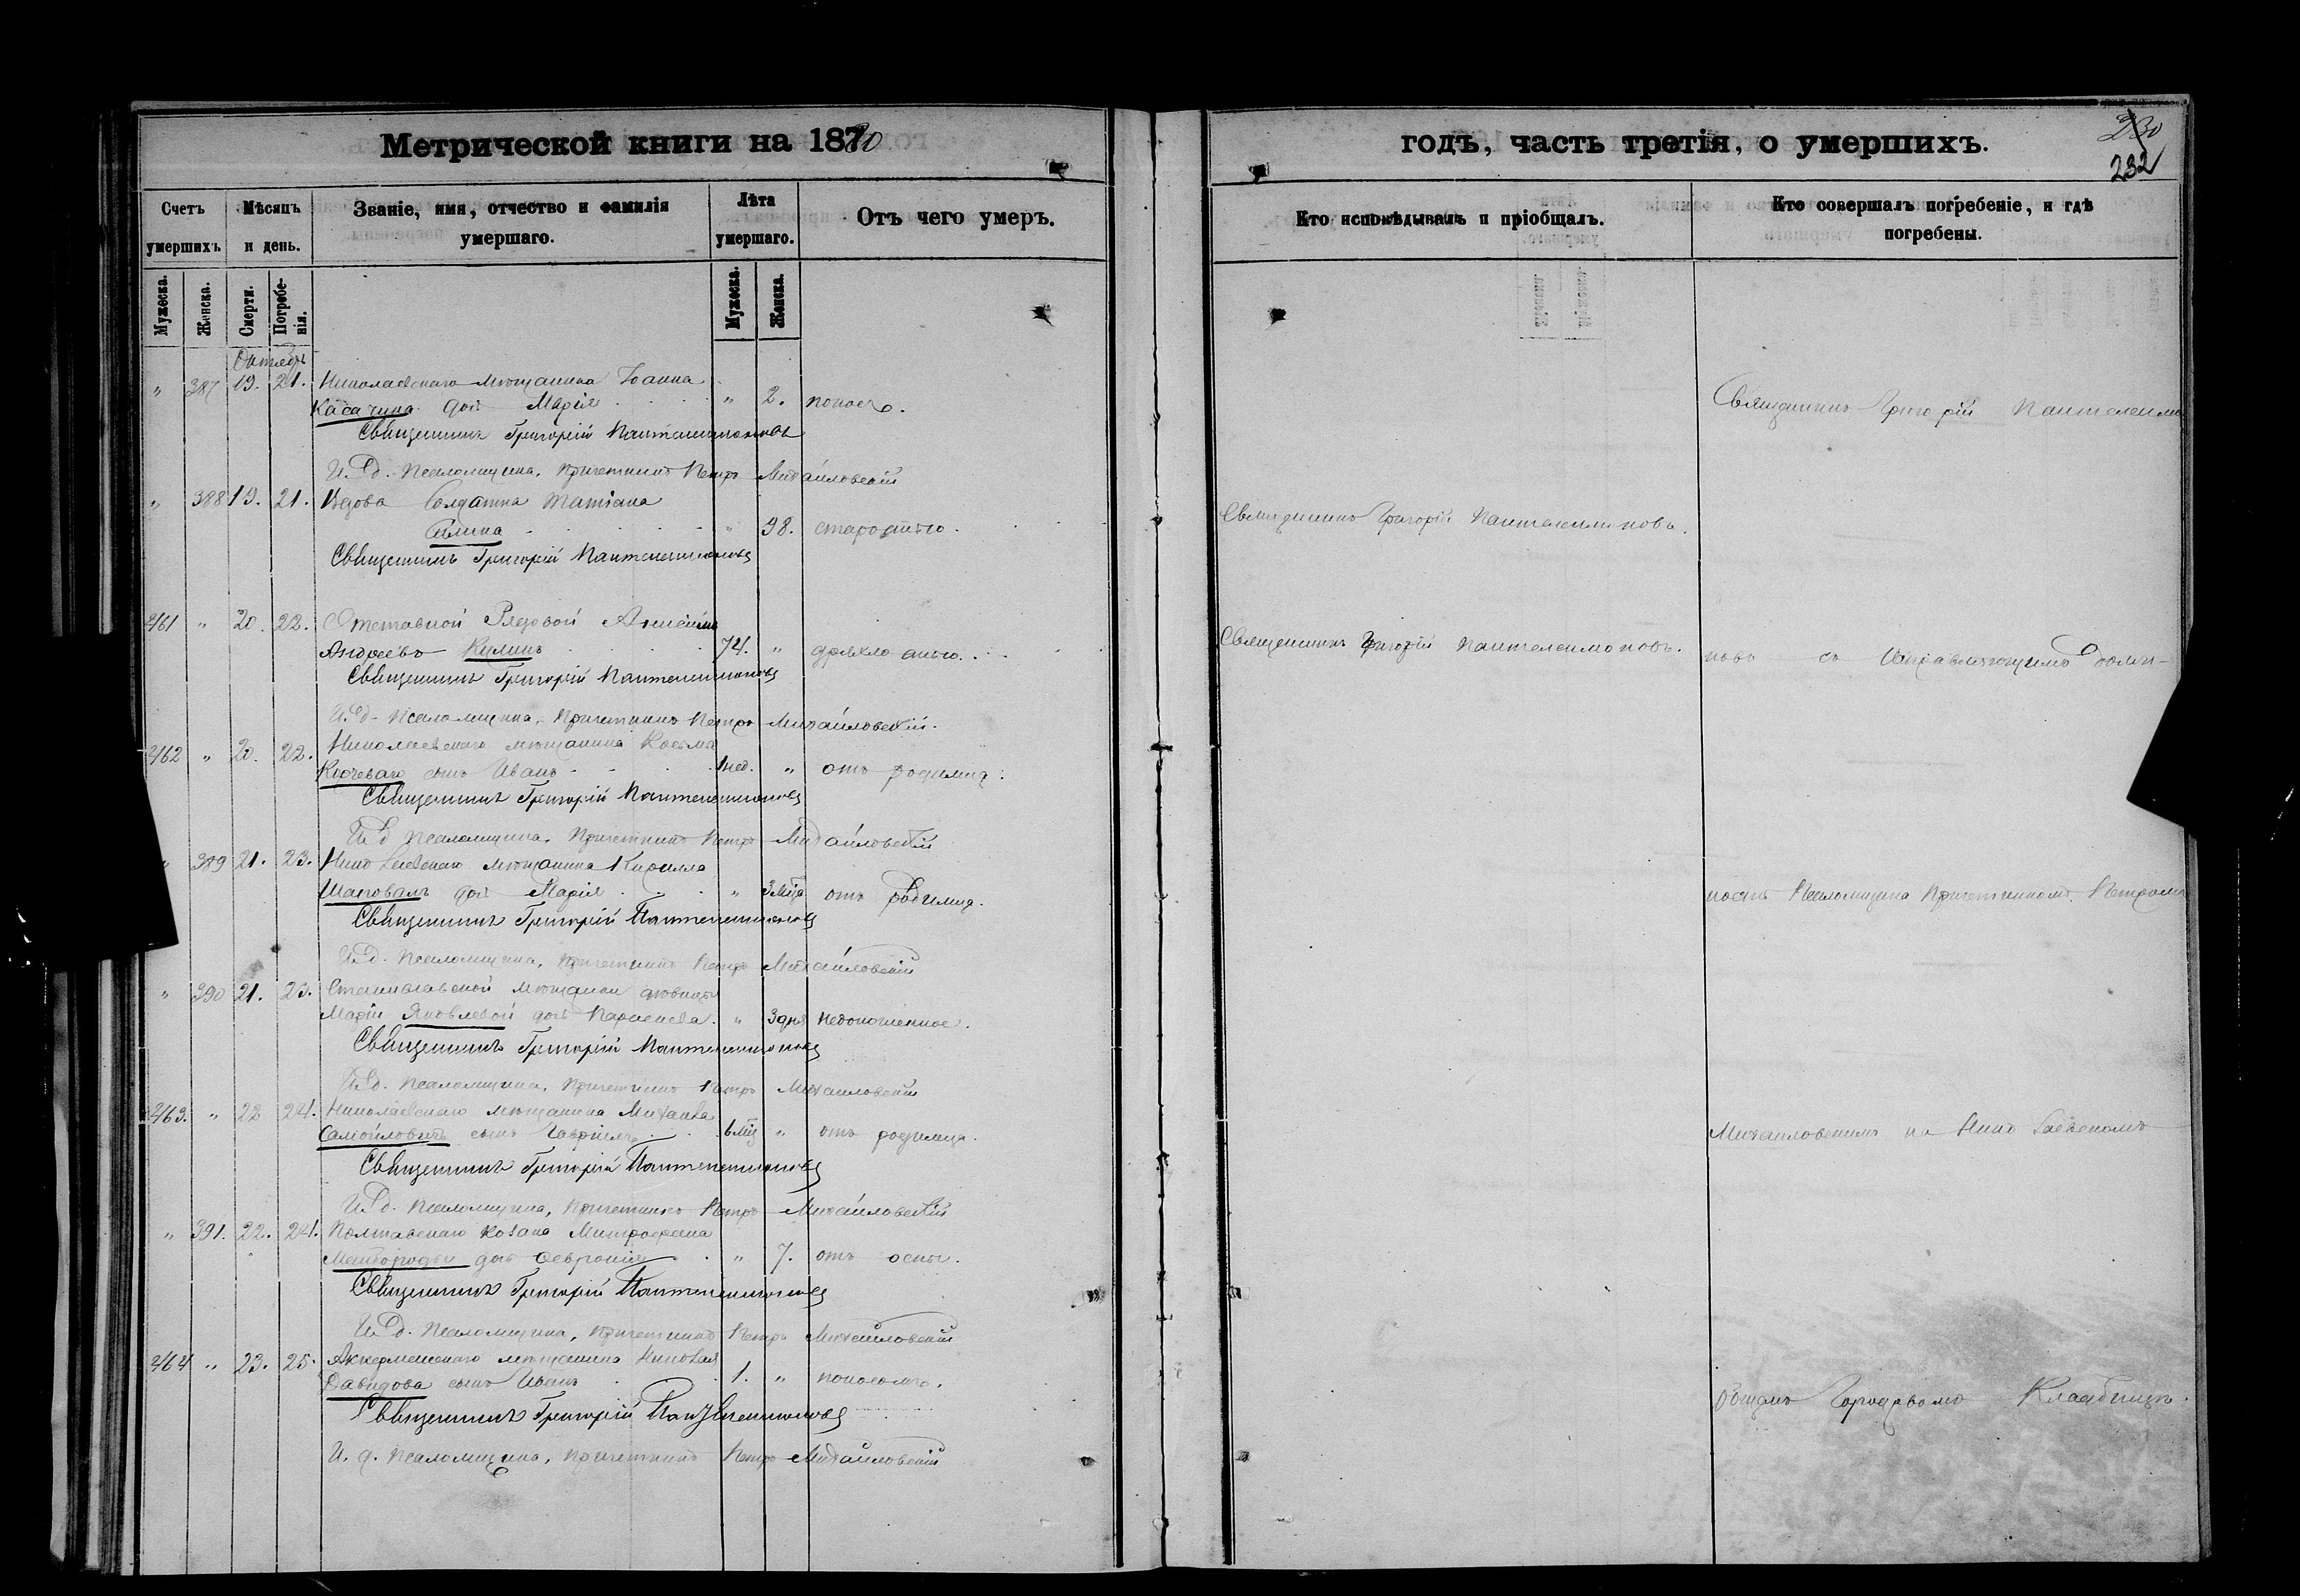 Метрической книги на 1880
годъ, часть третія, о умершихъ.
230
232
Счетъ умершихъ.
Мѣсяцъ и день.
Званіе, имя, отчество и фамилія умершаго.
Лѣта умершаго.
Отъ чего умеръ.
Кто исповѣдывалъ и пріобщалъ.
Кто совершалъ погребеніе, и гдѣ погребены.
Мужеска.
Женска.
Смерти.
Погребенія.
Мужеска.
Женска.
Октябрь
" 387 19. 21. Николаевскаго мѣщанина Іоанна
дочь Марія " 2. поносъ.
Священникъ Григорій Пантелеимоновъ
Священникъ Григорій Пантелеимо
И. д. Псаломщика, Причетникъ Петръ Михайловскій
" 388 19. 21. Вдова Солдатка Татіана
" 98. старостію.
Священникъ Григорій Пантелеимоновъ.
Священникъ Григорій Пантелеимоновъ
461 " 20. 22. Отставной Рядовой
Андреевъ Кулинъ 74. " дряхлостію.
Священникъ Григорій Пантелеимоновъ.
новъ съ Исправляющимъ долж-
Священникъ Григорій Пантелеимоновъ
И. д. Псаломщика, Причетникъ Петръ Михайловскій.
462 " 20. 22. Николаевскаго мѣщанина Косьмы
сынъ Иванъ 1 нед. " отъ родимца.
Священникъ Григорій Пантелеимоновъ
И. д. Псаломщика, Причетникъ Петръ Михайловскій
" 389 21. 23. Николаевскаго мѣщанина Кирилла
Шаповалъ дочь Марія " 3 мца отъ родимца.
ность Псаломщика Причетникомъ Петромъ
Священникъ Григорій Пантелеимоновъ
И. д. Псаломщика, Причетникъ Петръ Михайловскій
" 390 21. 23. мѣщанки девицы
Маріи Яковлевой дочь " 3 дня недоношенное.
Священникъ Григорій Пантелеимоновъ
И. д. Псаломщика, Причетникъ Петръ Михайловскій
463. " 22 24. Николаевскаго мѣщанина Михаила
Самойловича сынъ Гавріилъ 6 мц " отъ родимца.
Михайловскимъ на Николаевскомъ
Священникъ Григорій Пантелеимоновъ
И. д. Псаломщика, Причетникъ Петръ Михайловскій
" 391. 22. 24. Полтавскаго козака Митрофана
дочь Февронія " 7. отъ оспы.
Священникъ Григорій Пантелеимоновъ
И. д. Псаломщика, Причетникъ Петръ Михайловскій
464 " 23. 25. Аккерменскаго мѣщанина Николая
Давидова сынъ Иванъ 1. " поносомъ.
общемъ Городскомъ Кладбищѣ.
Священникъ Григорій Пантелеимоновъ
И. д. Псаломщика, Причетникъ Петръ Михайловскій